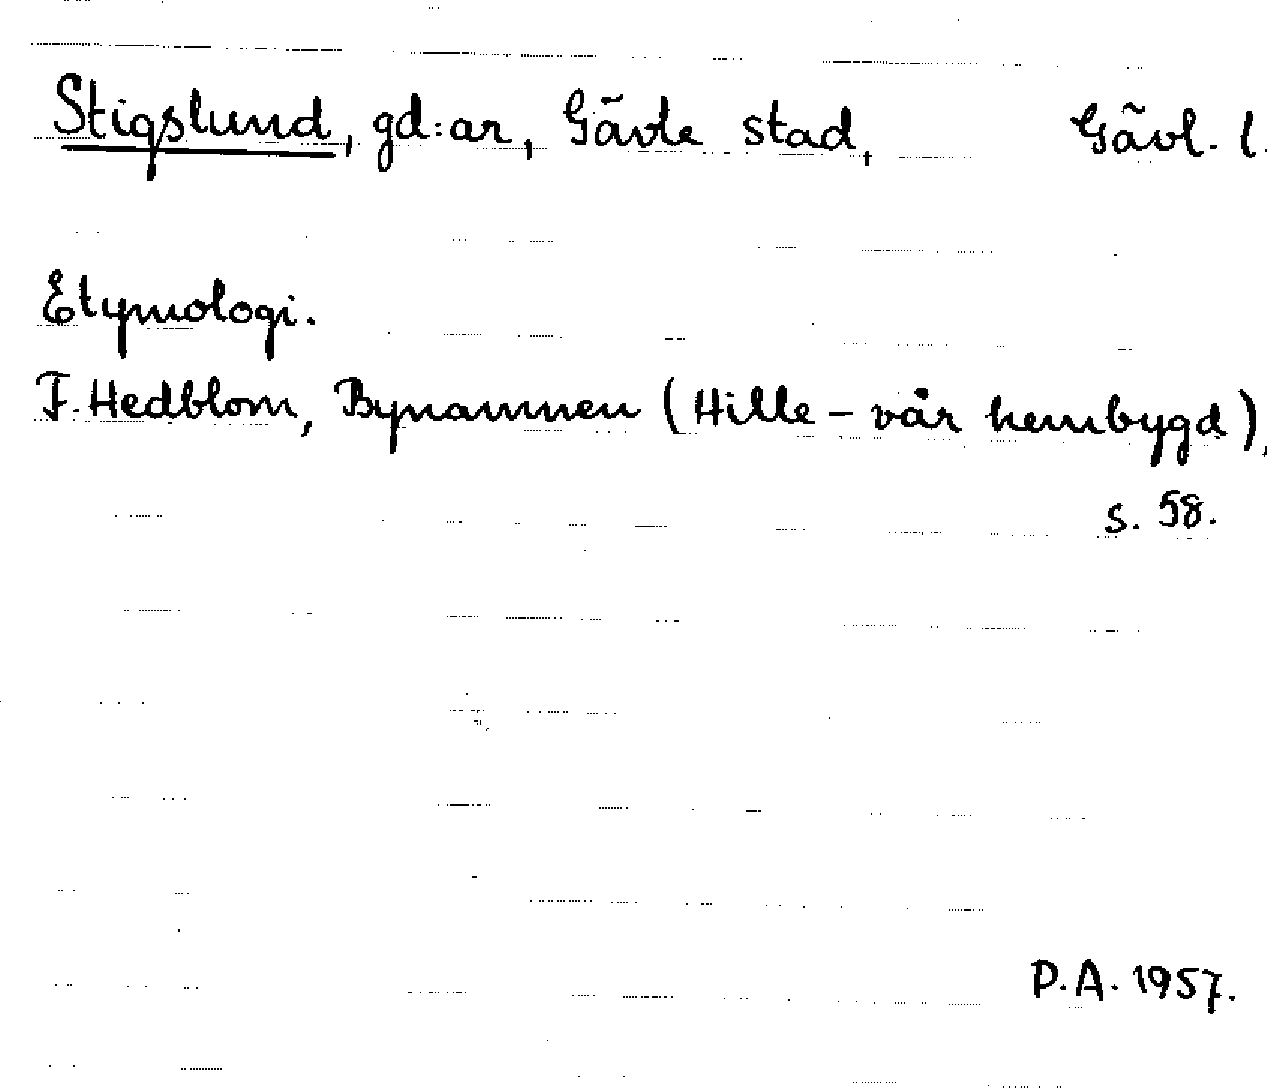 Stigslund, gd:ar, Gävle stad, Gävl. l.
Etymologi.
F. Hedblom, Bynamnen (Hille – vår hembygd),
s. 58.
P.A. 1957.